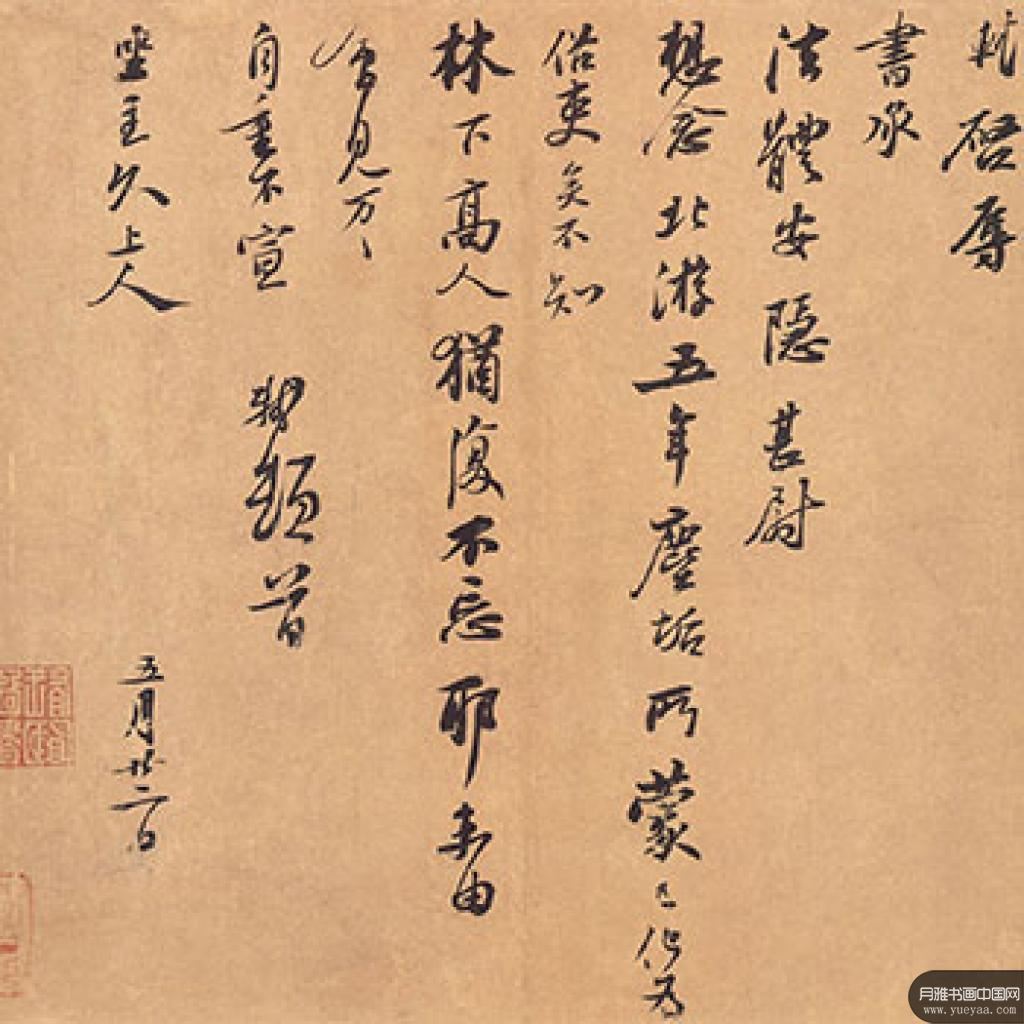 軾啓辱
書承
法體安隱甚尉
想念北游五年塵垢所蒙已化為
俗吏矣不知
林下高人猶復不忘耶未由
會見万〻
自重不宣 軾頓首
坐主久上人
五月廿二日
月雅书画中国网
www.yueyaa.com